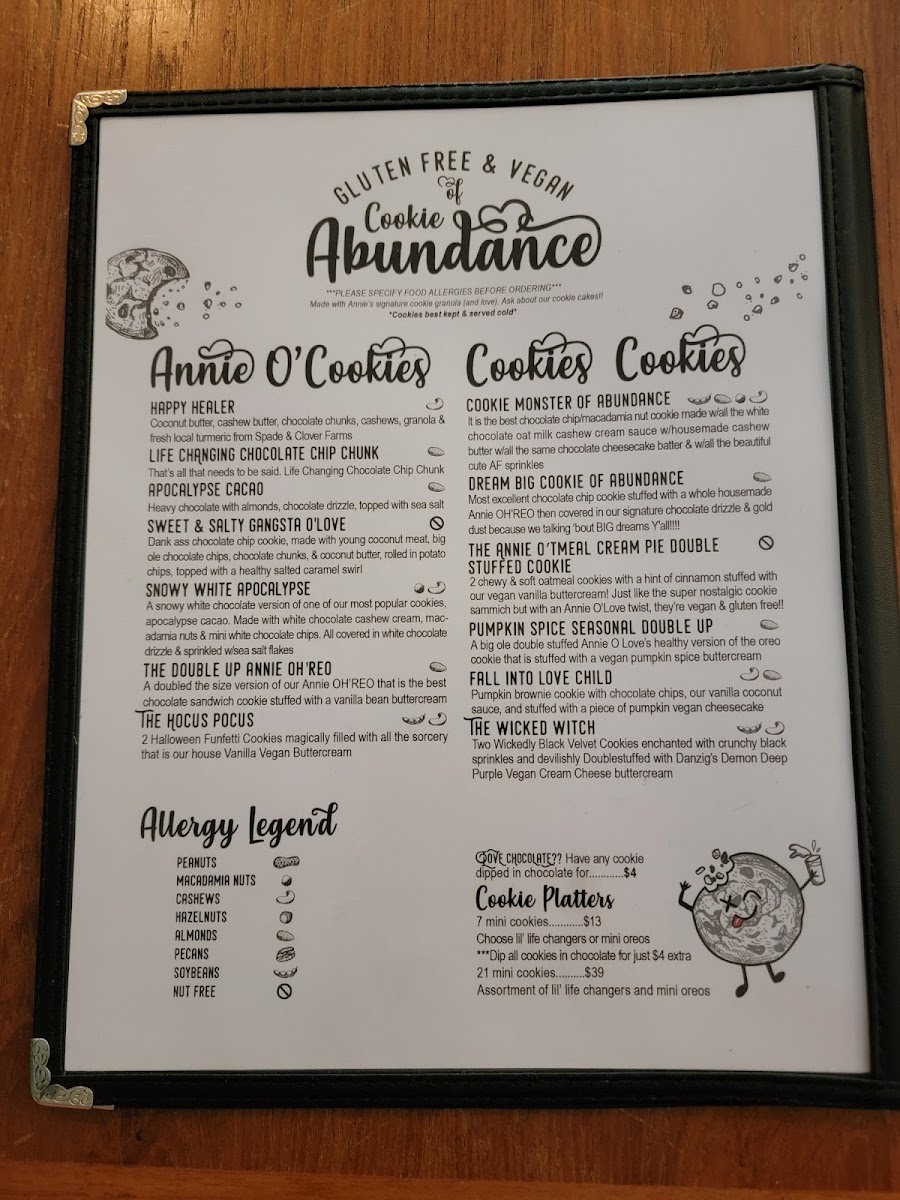 GLUTEN FREE & VEGAN
of
Cookie
Abundance
***PLEASE SPECIFY FOOD ALLERGIES BEFORE ORDERING***
Made with Annie's signature cookie granola (and love). Ask about our cookie cakes!!
*Cookies best kept & served cold*
Annie O'Cookies
HAPPY HEALER
Coconut butter, cashew butter, chocolate chunks, cashews, granola &
fresh local turmeric from Spade & Clover Farms
LIFE CHANGING CHOCOLATE CHIP CHUNK
That's all that needs to be said. Life Changing Chocolate Chip Chunk
APOCALYPSE CACAO
Heavy chocolate with almonds, chocolate drizzle, topped with sea salt
SWEET & SALTY GANGSTA O'LOVE
Dank ass chocolate chip cookie, made with young coconut meat, big
ole chocolate chips, chocolate chunks, & coconut butter, rolled in potato
chips, topped with a healthy salted caramel swirl
SNOWY WHITE APOCALYPSE
A snowy white chocolate version of one of our most popular cookies,
apocalypse cacao. Made with white chocolate cashew cream, mac-
adamia nuts & mini white chocolate chips. All covered in white chocolate
drizzle & sprinkled w/sea salt flakes
THE DOUBLE UP ANNIE OH'REO
A doubled the size version of our Annie OH'REO that is the best
chocolate sandwich cookie stuffed with a vanilla bean buttercream
THE HOCUS POCUS
2 Halloween Funfetti Cookies magically filled with all the sorcery
that is our house Vanilla Vegan Buttercream
Cookies Cookies
COOKIE MONSTER OF ABUNDANCE
It is the best chocolate chip/macadamia nut cookie made w/all the white
chocolate oat milk cashew cream sauce w/housemade cashew
butter w/all the same chocolate cheesecake batter & w/all the beautiful
cute AF sprinkles
DREAM BIG COOKIE OF ABUNDANCE
Most excellent chocolate chip cookie stuffed with a whole housemade
Annie OH'REO then covered in our signature chocolate drizzle & gold
dust because we talking 'bout BIG dreams Y'all!!!!
THE ANNIE O'TMEAL CREAM PIE DOUBLE
STUFFED COOKIE
2 chewy & soft oatmeal cookies with a hint of cinnamon stuffed with
our vegan vanilla buttercream! Just like the super nostalgic cookie
sammich but with an Annie O'Love twist, they're vegan & gluten free!!
PUMPKIN SPICE SEASONAL DOUBLE UP
A big ole double stuffed Annie O Love's healthy version of the oreo
cookie that is stuffed with a vegan pumpkin spice buttercream
FALL INTO LOVE CHILD
Pumpkin brownie cookie with chocolate chips, our vanilla coconut
sauce, and stuffed with a piece of pumpkin vegan cheesecake
THE WICKED WITCH
Two Wickedly Black Velvet Cookies enchanted with crunchy black
sprinkles and devilishly Doublestuffed with Danzig's Demon Deep
Purple Vegan Cream Cheese buttercream
Allergy Legend
PEANUTS
MACADAMIA NUTS
CASHEWS
HAZELNUTS
ALMONDS
PECANS
SOYBEANS
NUT FREE
LOVE CHOCOLATE?? Have any cookie
dipped in chocolate for............$4
Cookie Platters
7 mini cookies...........$13
Choose lil' life changers or mini oreos
***Dip all cookies in chocolate for just $4 extra
21 mini cookies..........$39
Assortment of lil' life changers and mini oreos